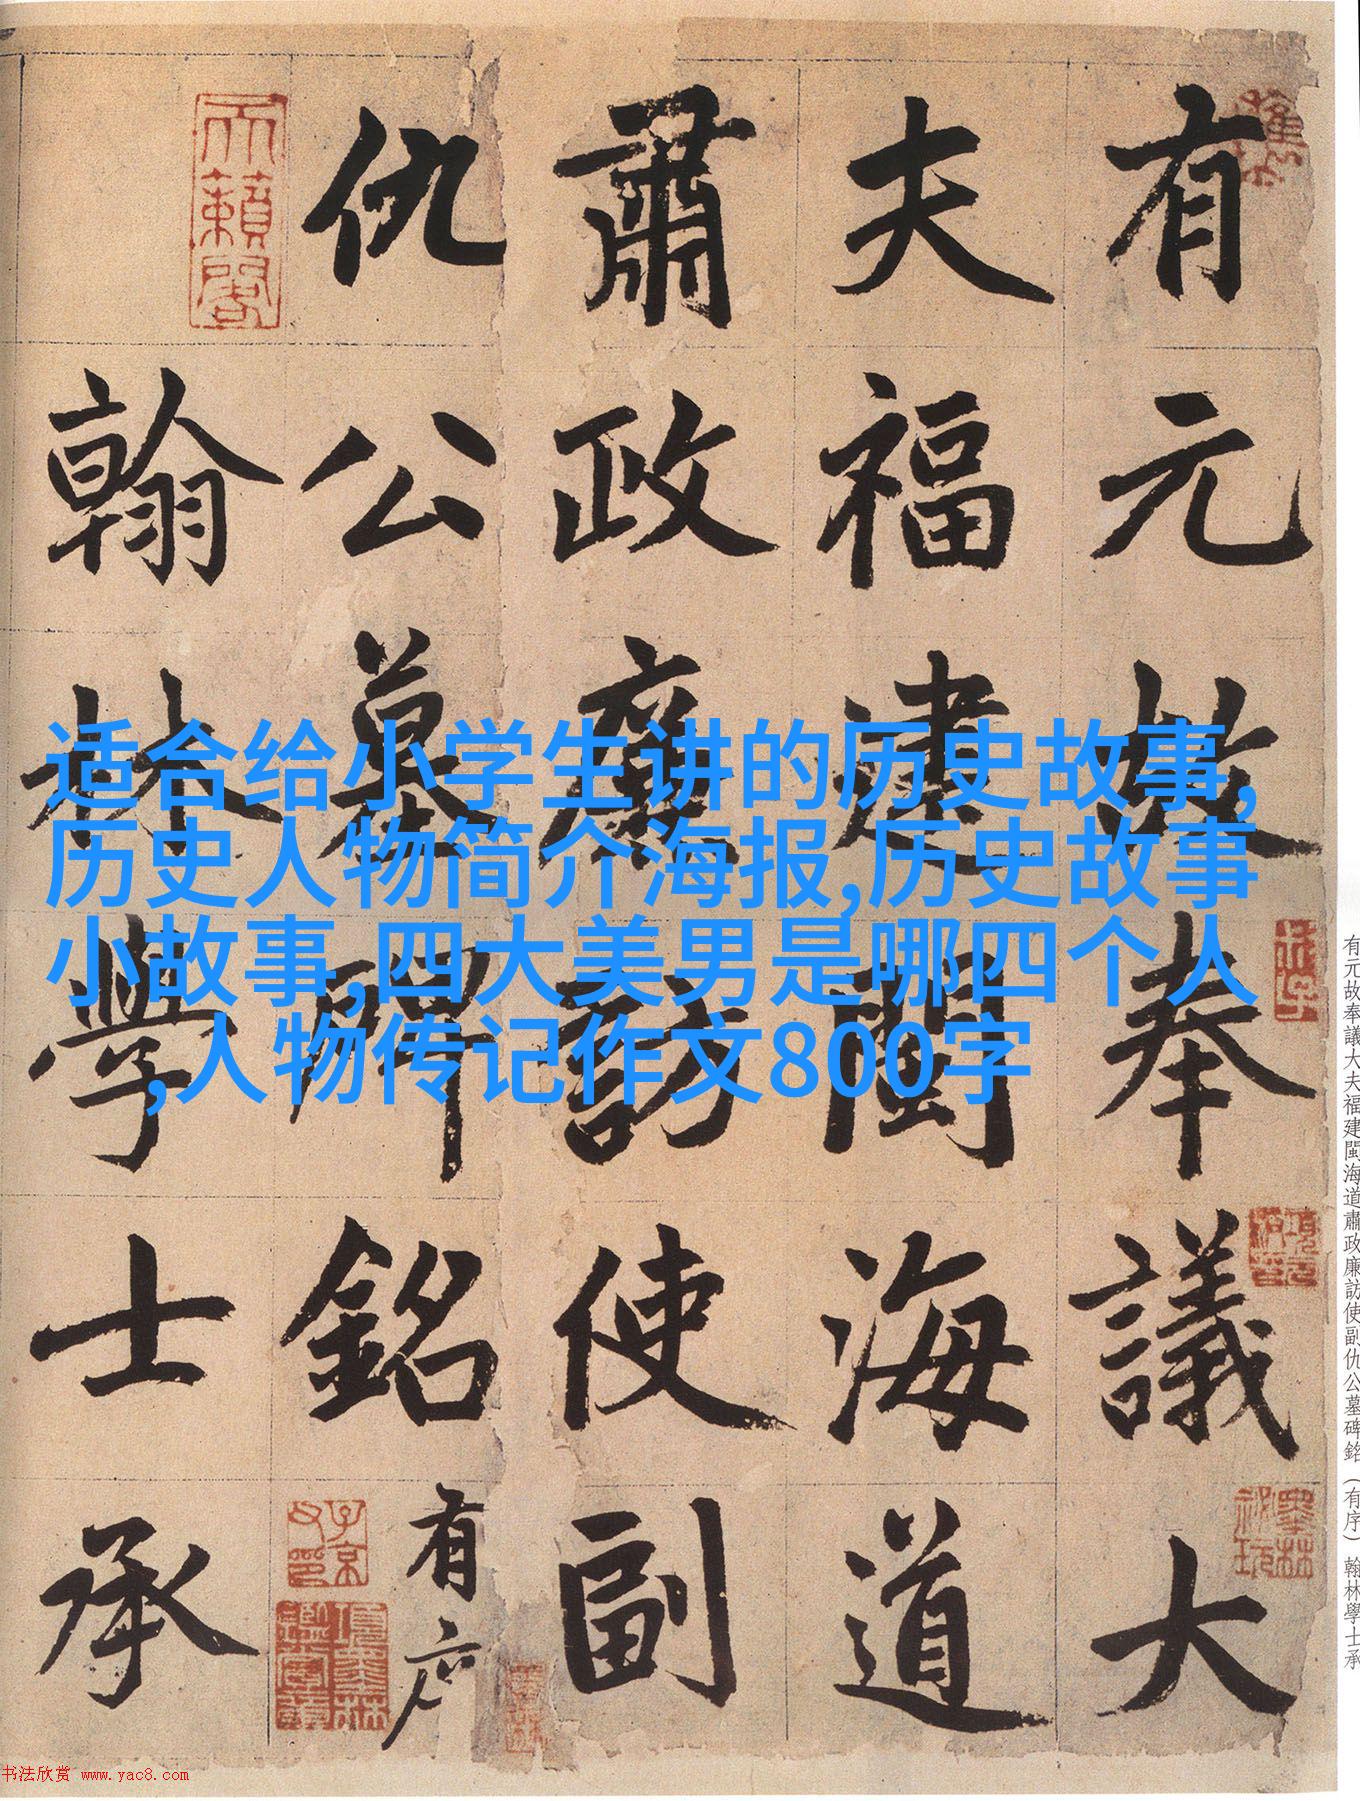 有元故奉議大
夫福建閩海道
肅政廉訪使副
仇公墓碑銘有序
翰林學士承
天籟閣
子京父印
适合给小学生讲的历史故事,
历史人物简介海报,历史故事
小故事,四大美男是哪四个人
,人物传记作文800字
有元故奉議大夫福建閩海道肅政廉訪使副仇公墓碑銘（有序）翰林學士承
书法欣赏 www.yac8.com